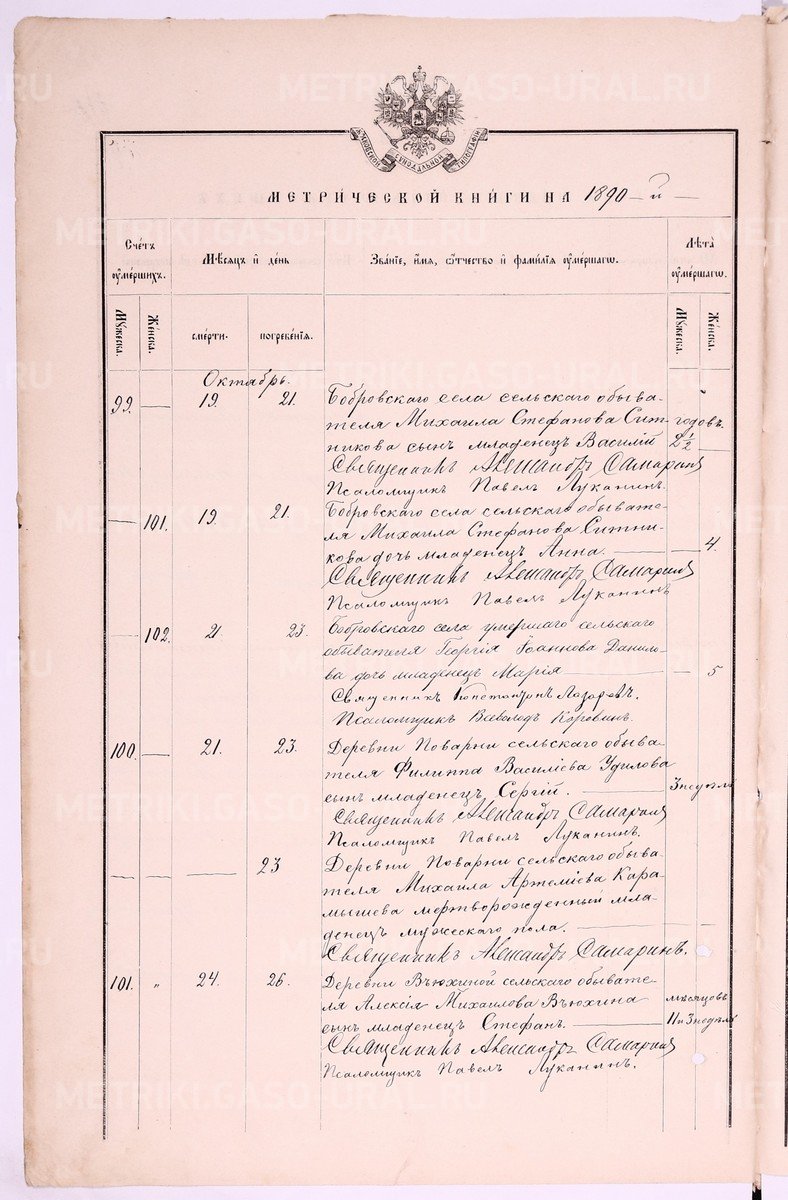 METRIKI.GASO-URAL.RU
МЕТРИЧЕСКОЙ КНИГИ НА 1890-й
Счетъ оумершихъ.
Мѣсяцъ и день
Званіе, имя, отчество и фамилія оумершагѡ.
Лѣта оумершагѡ.
Мужеска.
Женска.
смерти.
погребенія.
Мужеска.
Женска.
Октябрь.
99. — 19. 21. Бобровскаго села сельскаго обыва-
теля Михаила Стефанова Сит- годовъ.
никова сынъ младенецъ Василій 2 1/2 —
Священникъ Александръ Самаринъ
Псаломщикъ Павелъ Луканинъ.
— 101. 19. 21. Бобровскаго села сельскаго обывате-
ля Михаила Стефанова Ситни-
кова дочь младенецъ Анна. — — 4.
Священникъ Александръ Самаринъ
Псаломщикъ Павелъ Луканинъ
— 102. 21 23. Бобровскаго села умершаго сельскаго
обывателя Георгія Іоаннова Данило-
ва дочь младенецъ Марія — — 5
Священникъ Константинъ Лазаревъ.
Псаломщикъ Всеволодъ Коровинъ.
100. — 21. 23. Деревни Поварни сельскаго обыва-
теля Филиппа Василіева Удилова
сынъ младенецъ Сергій. — 3 недѣли
Священникъ Александръ Самаринъ
Псаломщикъ Павелъ Луканинъ.
— — — 23 Деревни Поварни сельскаго обыва-
теля Михаила Артеміева Кара-
мышева мертворожденный мла-
денецъ мужескаго пола. — — —
Священникъ Александръ Самаринъ.
101. „ 24. 26. Деревни Вьюхиной сельскаго обывате-
ля Алексія Михаилова Вьюхина мѣсяцовъ
сынъ младенецъ Стефанъ. — 11 и 3 недѣли
Священникъ Александръ Самаринъ
Псаломщикъ Павелъ Луканинъ.